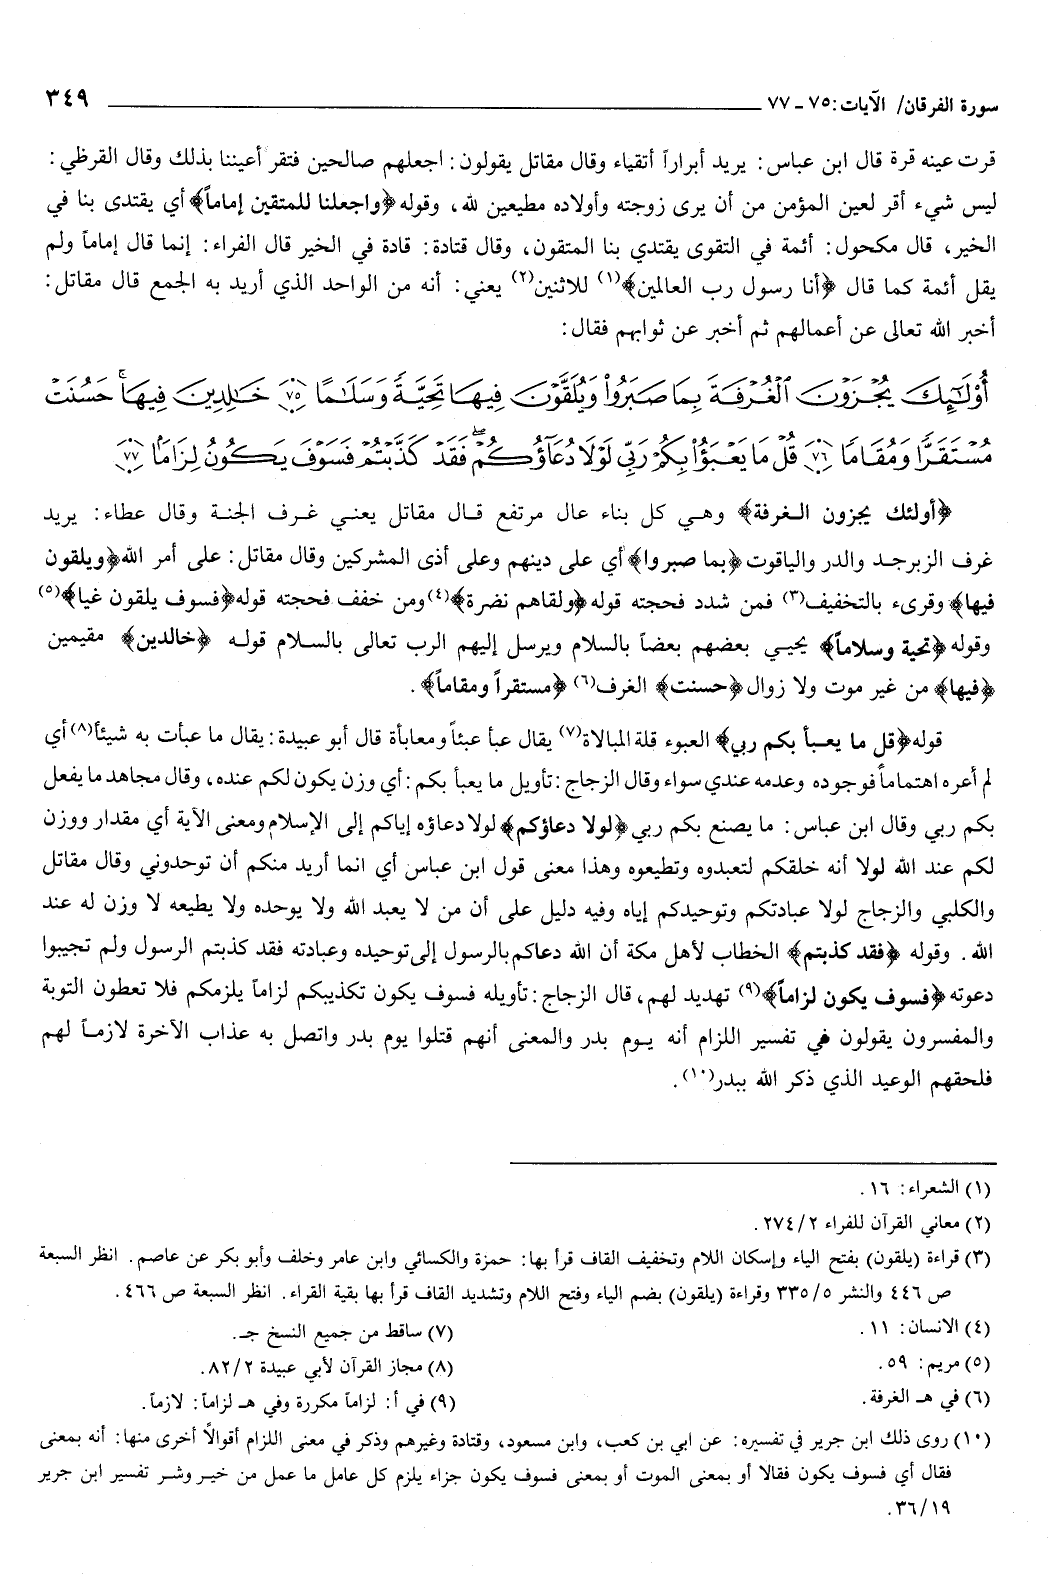 سورة الفرقان/ الآيات: ٧٥ - ٧٧ ٣٤٩
قرت عينه قرة قال ابن عباس: يريد أبراراً أتقياء وقال مقاتل يقولون: اجعلهم صالحين فتقر أعيننا بذلك وقال القرظي:
ليس شيء أقر لعين المؤمن من أن يرى زوجته وأولاده مطيعين لله، وقوله ﴿واجعلنا للمتقين إماماً﴾ أي يقتدى بنا في
الخير، قال مكحول: أئمة في التقوى يقتدي بنا المتقون، وقال قتادة: قادة في الخير قال الفراء: إنما قال إماماً ولم
يقل أئمة كما قال ﴿أنا رسول رب العالمين﴾(١) للاثنين(٢) يعني: أنه من الواحد الذي أريد به الجمع قال مقاتل:
أخبر الله تعالى عن أعمالهم ثم أخبر عن ثوابهم فقال:
أُوْلَٰٓئِكَ يُجْزَوْنَ ٱلْغُرْفَةَ بِمَا صَبَرُواْ وَيُلَقَّوْنَ فِيهَا تَحِيَّةً وَسَلَٰمًا ﴿٧٥﴾ خَٰلِدِينَ فِيهَا ۚ حَسُنَتْ
مُسْتَقَرًّا وَمُقَامًا ﴿٧٦﴾ قُلْ مَا يَعْبَؤُاْ بِكُمْ رَبِّى لَوْلَا دُعَآؤُكُمْ ۖ فَقَدْ كَذَّبْتُمْ فَسَوْفَ يَكُونُ لِزَامًۢا ﴿٧٧﴾
﴿أولئك يجزون الغرفة﴾ وهي كل بناء عال مرتفع قال مقاتل يعني غرف الجنة وقال عطاء: يريد
غرف الزبرجد والدر والياقوت ﴿بما صبروا﴾ أي على دينهم وعلى أذى المشركين وقال مقاتل: على أمر الله ﴿ويلقون
فيها﴾ وقرىء بالتخفيف(٣) فمن شدد فحجته قوله ﴿ولقاهم نضرة﴾(٤) ومن خفف فحجته قوله ﴿فسوف يلقون غيا﴾(٥)
وقوله ﴿تحية وسلاماً﴾ يحيي بعضهم بعضاً بالسلام ويرسل إليهم الرب تعالى بالسلام قوله ﴿خالدين﴾ مقيمين
﴿فيها﴾ من غير موت ولا زوال ﴿حسنت﴾ الغرف(٦) ﴿مستقراً ومقاماً﴾.
قوله ﴿قل ما يعبأ بكم ربي﴾ العبوء قلة المبالاة(٧) يقال عبأ عبئاً ومعابأة قال أبو عبيدة: يقال ما عبأت به شيئاً(٨) أي
لم أعره اهتماماً فوجوده وعدمه عندي سواء وقال الزجاج: تأويل ما يعبأ بكم: أي وزن يكون لكم عنده، وقال مجاهد ما يفعل
بكم ربي وقال ابن عباس: ما يصنع بكم ربي ﴿لولا دعاؤكم﴾ لولا دعاؤه إياكم إلى الإسلام ومعنى الآية أي مقدار ووزن
لكم عند الله لولا أنه خلقكم لتعبدوه وتطيعوه وهذا معنى قول ابن عباس أي انما أريد منكم أن توحدوني وقال مقاتل
والكلبي والزجاج لولا عبادتكم وتوحيدكم إياه وفيه دليل على أن من لا يعبد الله ولا يوحده ولا يطيعه لا وزن له عند
الله. وقوله ﴿فقد كذبتم﴾ الخطاب لأهل مكة أن الله دعاكم بالرسول إلى توحيده وعبادته فقد كذبتم الرسول ولم تجيبوا
دعوته ﴿فسوف يكون لزاماً﴾(٩) تهديد لهم، قال الزجاج: تأويله فسوف يكون تكذيبكم لزاماً يلزمكم فلا تعطون التوبة
والمفسرون يقولون في تفسير اللزام أنه يوم بدر والمعنى أنهم قتلوا يوم بدر واتصل به عذاب الآخرة لازماً لهم
فلحقهم الوعيد الذي ذكر الله ببدر(١٠).
(١) الشعراء: ١٦.
(٢) معاني القرآن للفراء ٢/ ٢٧٤.
(٣) قراءة (يلقون) بفتح الياء وإسكان اللام وتخفيف القاف قرأ بها: حمزة والكسائي وابن عامر وخلف وأبو بكر عن عاصم. انظر السبعة
ص ٤٤٦ والنشر ٥/ ٣٣٥ وقراءة (يلقون) بضم الياء وفتح اللام وتشديد القاف قرأ بها بقية القراء. انظر السبعة ص ٤٦٦.
(٤) الانسان: ١١.
(٥) مريم: ٥٩.
(٦) في هـ الغرفة.
(٧) ساقط من جميع النسخ جـ.
(٨) مجاز القرآن لأبي عبيدة ٢/ ٨٢.
(٩) في أ: لزاماً مكررة وفي هـ لزاماً: لازماً.
(١٠) روى ذلك ابن جرير في تفسيره: عن ابي بن كعب، وابن مسعود، وقتادة وغيرهم وذكر في معنى اللزام أقوالًا أخرى منها: أنه بمعنى
فقال أي فسوف يكون فقالا أو بمعنى الموت أو بمعنى فسوف يكون جزاء يلزم كل عامل ما عمل من خير وشر تفسير ابن جرير
١٩/ ٣٦.